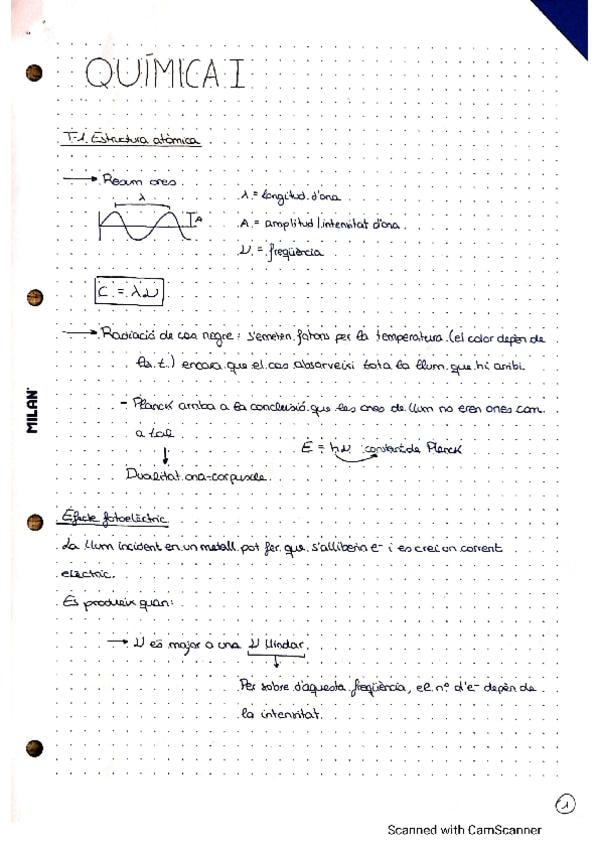 QUÍMICA I
T-1. Estructura atòmica
→ Resum ones
λ
A
λ = longitud d'ona
A = amplitud / intensitat d'ona
ν = freqüència
C = λν
→ Radiació de cos negre: s'emeten fotons per la temperatura (el color depèn de
la t.) encara que el cos absorveixi tota la llum que hi arribi.
- Planck arriba a la conclusió que les ones de llum no eren ones com
a tal
E = hν constant de Planck
↓
Dualitat ona-corpuscle.
Efecte fotoelèctric
La llum incident en un metall pot fer que s'alliberin e- i es crei un corrent
elèctric.
Es produeix quan:
→ ν és major a una ν llindar.
↓
Per sobre d'aquesta freqüència, el nº d'e- depèn de
la intensitat.
MILAN
1
Scanned with CamScanner